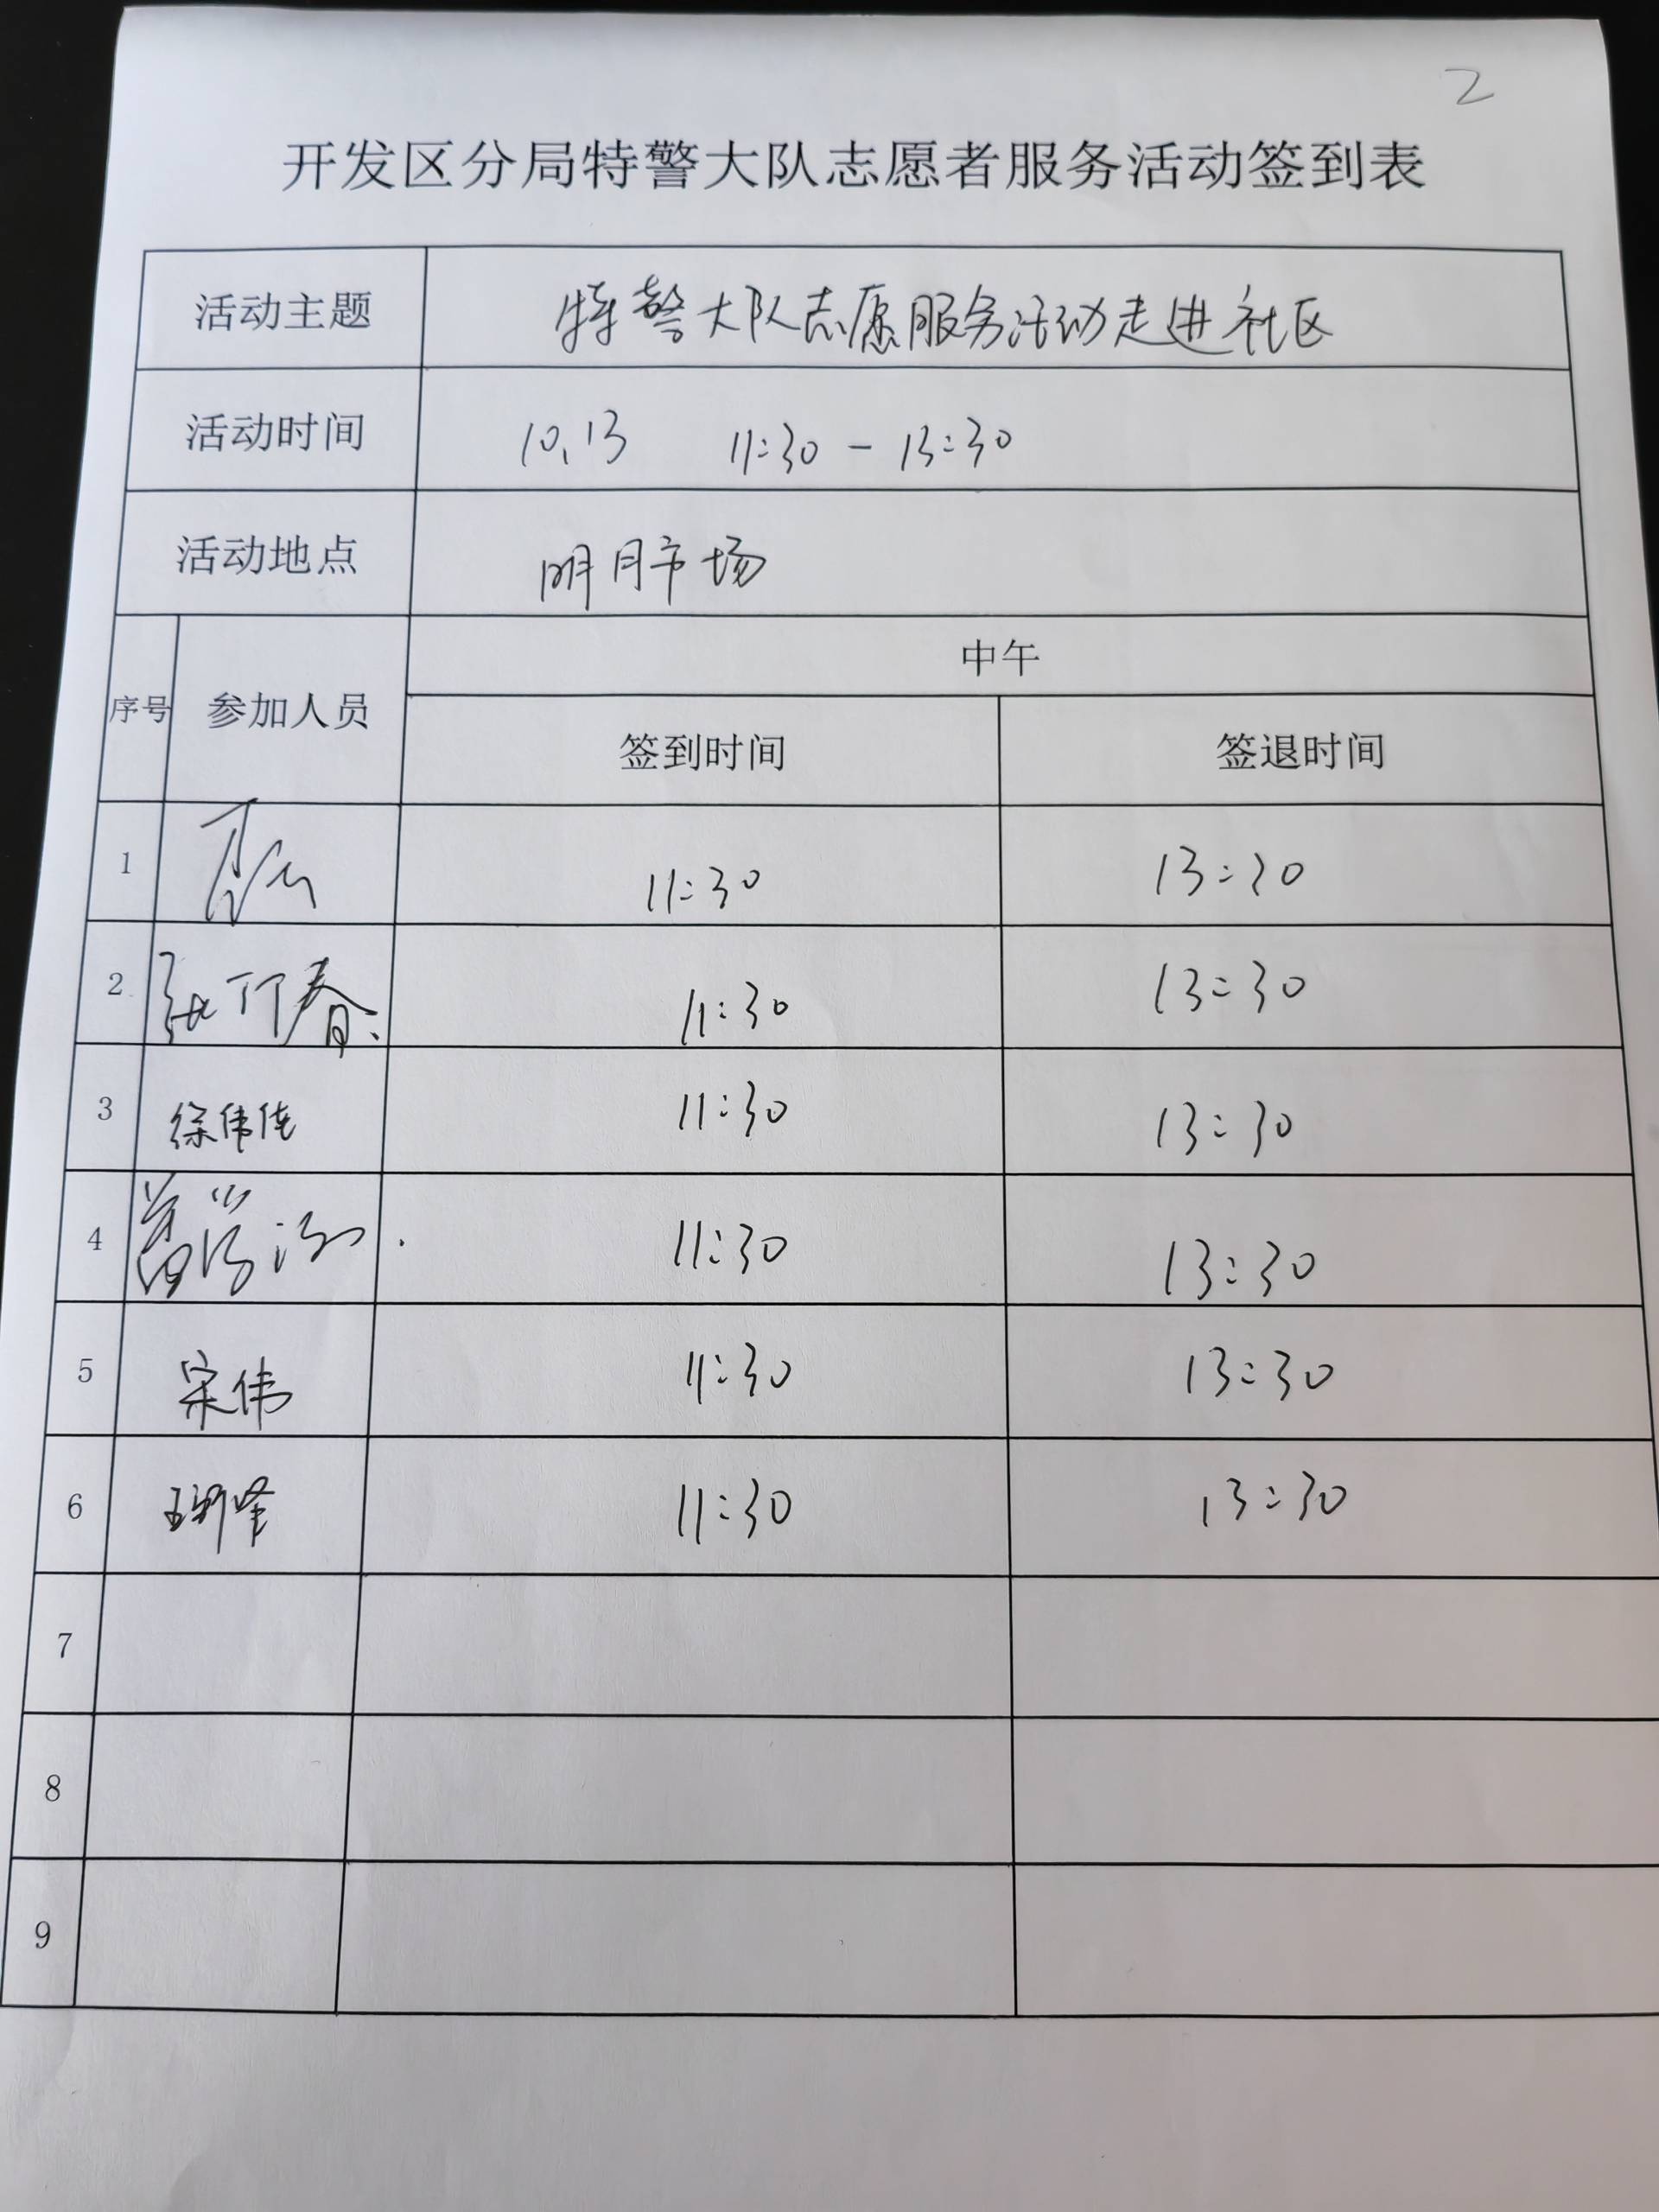 2
开发区分局特警大队志愿者服务活动签到表
活动主题 特警大队志愿服务活动走进社区
活动时间 10.13 11:30 - 13:30
活动地点 明月市场
序号 参加人员 中午
签到时间 签退时间
1 11:30 13:30
2 张 春 11:30 13:30
3 徐伟佳 11:30 13:30
4 11:30 13:30
5 宋伟 11:30 13:30
6 王 11:30 13:30
7
8
9